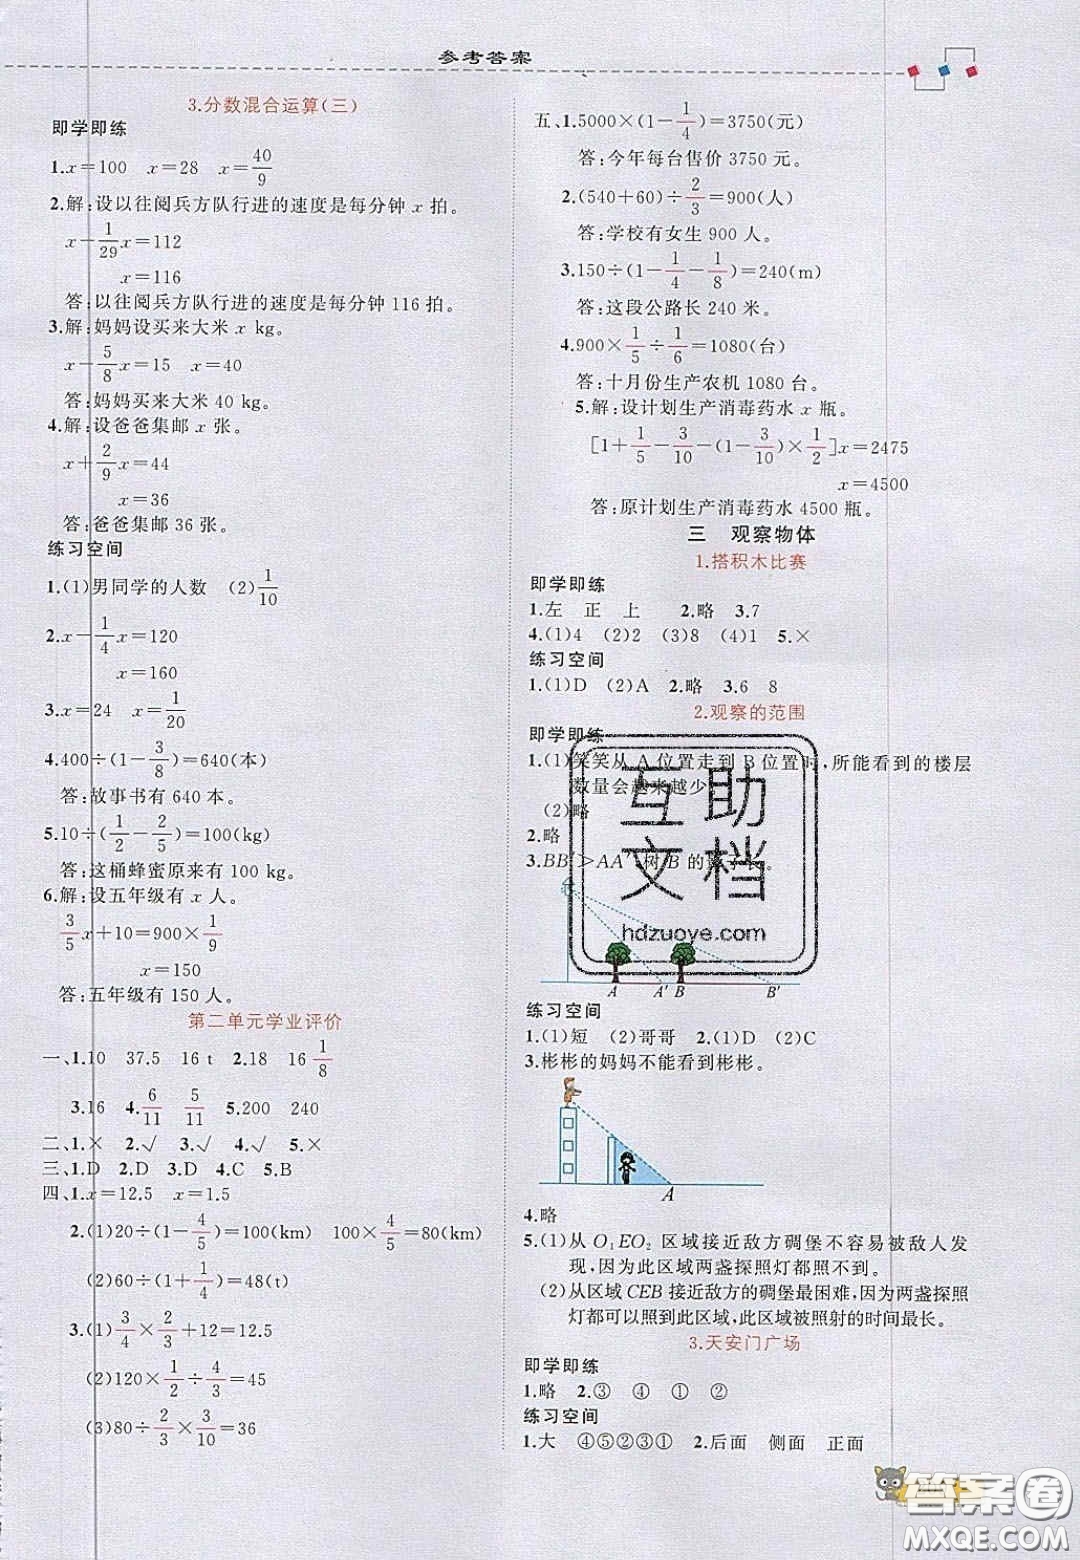 参考答案
3.分数混合运算(三)
即学即练
1.x=100 x=28 x=40/9
2.解:设以往阅兵方队行进的速度是每分钟 x 拍。
x-1/29x=112
x=116
答:以往阅兵方队行进的速度是每分钟 116 拍。
3.解:妈妈设买来大米 x kg。
x-5/8x=15 x=40
答:妈妈买来大米 40 kg。
4.解:设爸爸集邮 x 张。
x+2/9x=44
x=36
答:爸爸集邮 36 张。
练习空间
1.(1)男同学的人数 (2)1/10
2.x-1/4x=120
x=160
3.x=24 x=1/20
4.400÷(1-3/8)=640(本)
答:故事书有 640 本。
5.10÷(1/2-2/5)=100(kg)
答:这桶蜂蜜原来有 100 kg。
6.解:设五年级有 x 人。
3/5x+10=900×1/9
x=150
答:五年级有 150 人。
第二单元学业评价
一、1.10 37.5 16 t 2.18 16 1/8
3.16 4.6/11 5/11 5.200 240
二、1.× 2.√ 3.√ 4.√ 5.×
三、1.D 2.D 3.D 4.C 5.B
四、1.x=12.5 x=1.5
2.(1)20÷(1-4/5)=100(km) 100×4/5=80(km)
(2)60÷(1+1/4)=48(t)
3.(1)3/4×2/3+12=12.5
(2)120×1/2÷4/3=45
(3)80÷2/3×3/10=36
五、1.5000×(1-1/4)=3750(元)
答:今年每台售价 3750 元。
2.(540+60)÷2/3=900(人)
答:学校有女生 900 人。
3.150÷(1-1/4-1/8)=240(m)
答:这段公路长 240 米。
4.900×1/5÷1/6=1080(台)
答:十月份生产农机 1080 台。
5.解:设计划生产消毒药水 x 瓶。
[1+1/5-3/10-(1-3/10)×1/2]x=2475
x=4500
答:原计划生产消毒药水 4500 瓶。
三 观察物体
1.搭积木比赛
即学即练
1.左 正 上 2.略 3.7
4.(1)4 (2)2 (3)8 (4)1 5.×
练习空间
1.(1)D (2)A 2.略 3.6 8
2.观察的范围
即学即练
1.(1)笑笑从 A 位置走到 B 位置时,所能看到的楼层
数量会越来越少。
(2)略
2.略
3.BB′>AA′,树 B 的影子长。
A A′ B B′
练习空间
1.(1)短 (2)哥哥 2.(1)D (2)C
3.彬彬的妈妈不能看到彬彬。
A
4.略
5.(1)从 O₁EO₂ 区域接近敌方碉堡不容易被敌人发
现,因为此区域两盏探照灯都照不到。
(2)从区域 CEB 接近敌方的碉堡最困难,因为两盏探照
灯都可以照到此区域,此区域被照射的时间最长。
3.天安门广场
即学即练
1.略 2.③ ④ ① ②
练习空间
1.大 ④⑤②③① 2.后面 侧面 正面
互助
文档
hdzuoye.com
答案圈
MXQE.COM